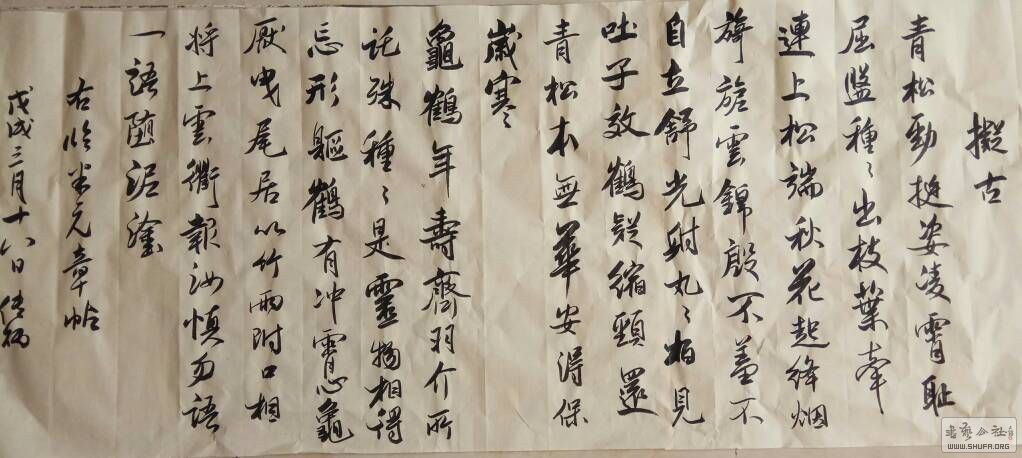 擬古
青松勁挺姿凌霄耻
屈盤種〻出枝葉牽
連上松端秋花起絳烟
旖旎雲錦殷不羞不
自立舒光射丸〻柏見
吐子效鶴疑縮頸還
青松本無華安得保
歲寒
龜鶴年壽齊羽介所
託殊種〻是靈物相得
忘形軀鶴有冲霄心龜
厭曳尾居以竹兩附口相
將上雲衢報汝慎勿語
一語墮泥塗
右临米元章帖
戊戌三月十八日
WWW.SHUFA.ORG